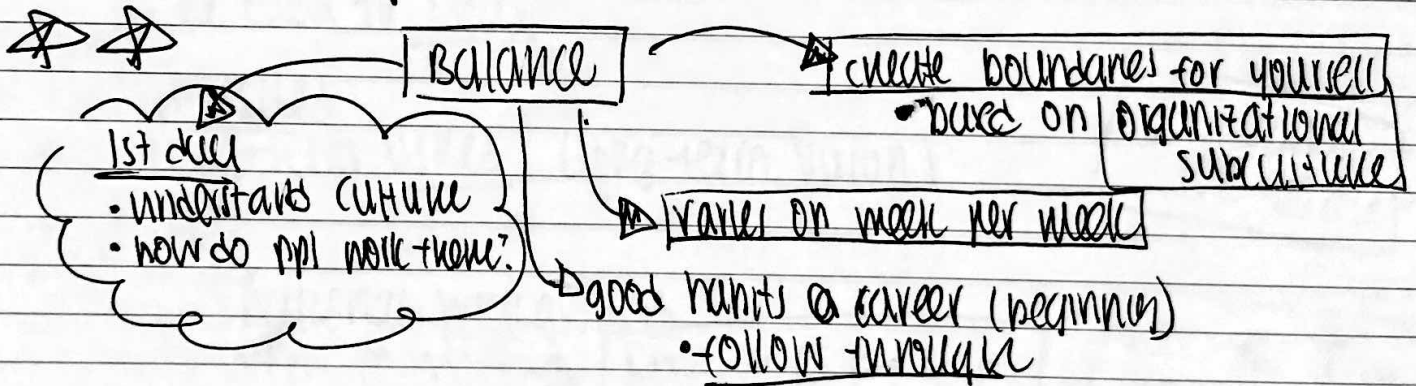 Balance
create boundaries for yourself
• based on organizational
subcultures
1st day
• understand culture
• how do ppl work there?
varies on week per week
good habits @ career (beginning)
• follow through